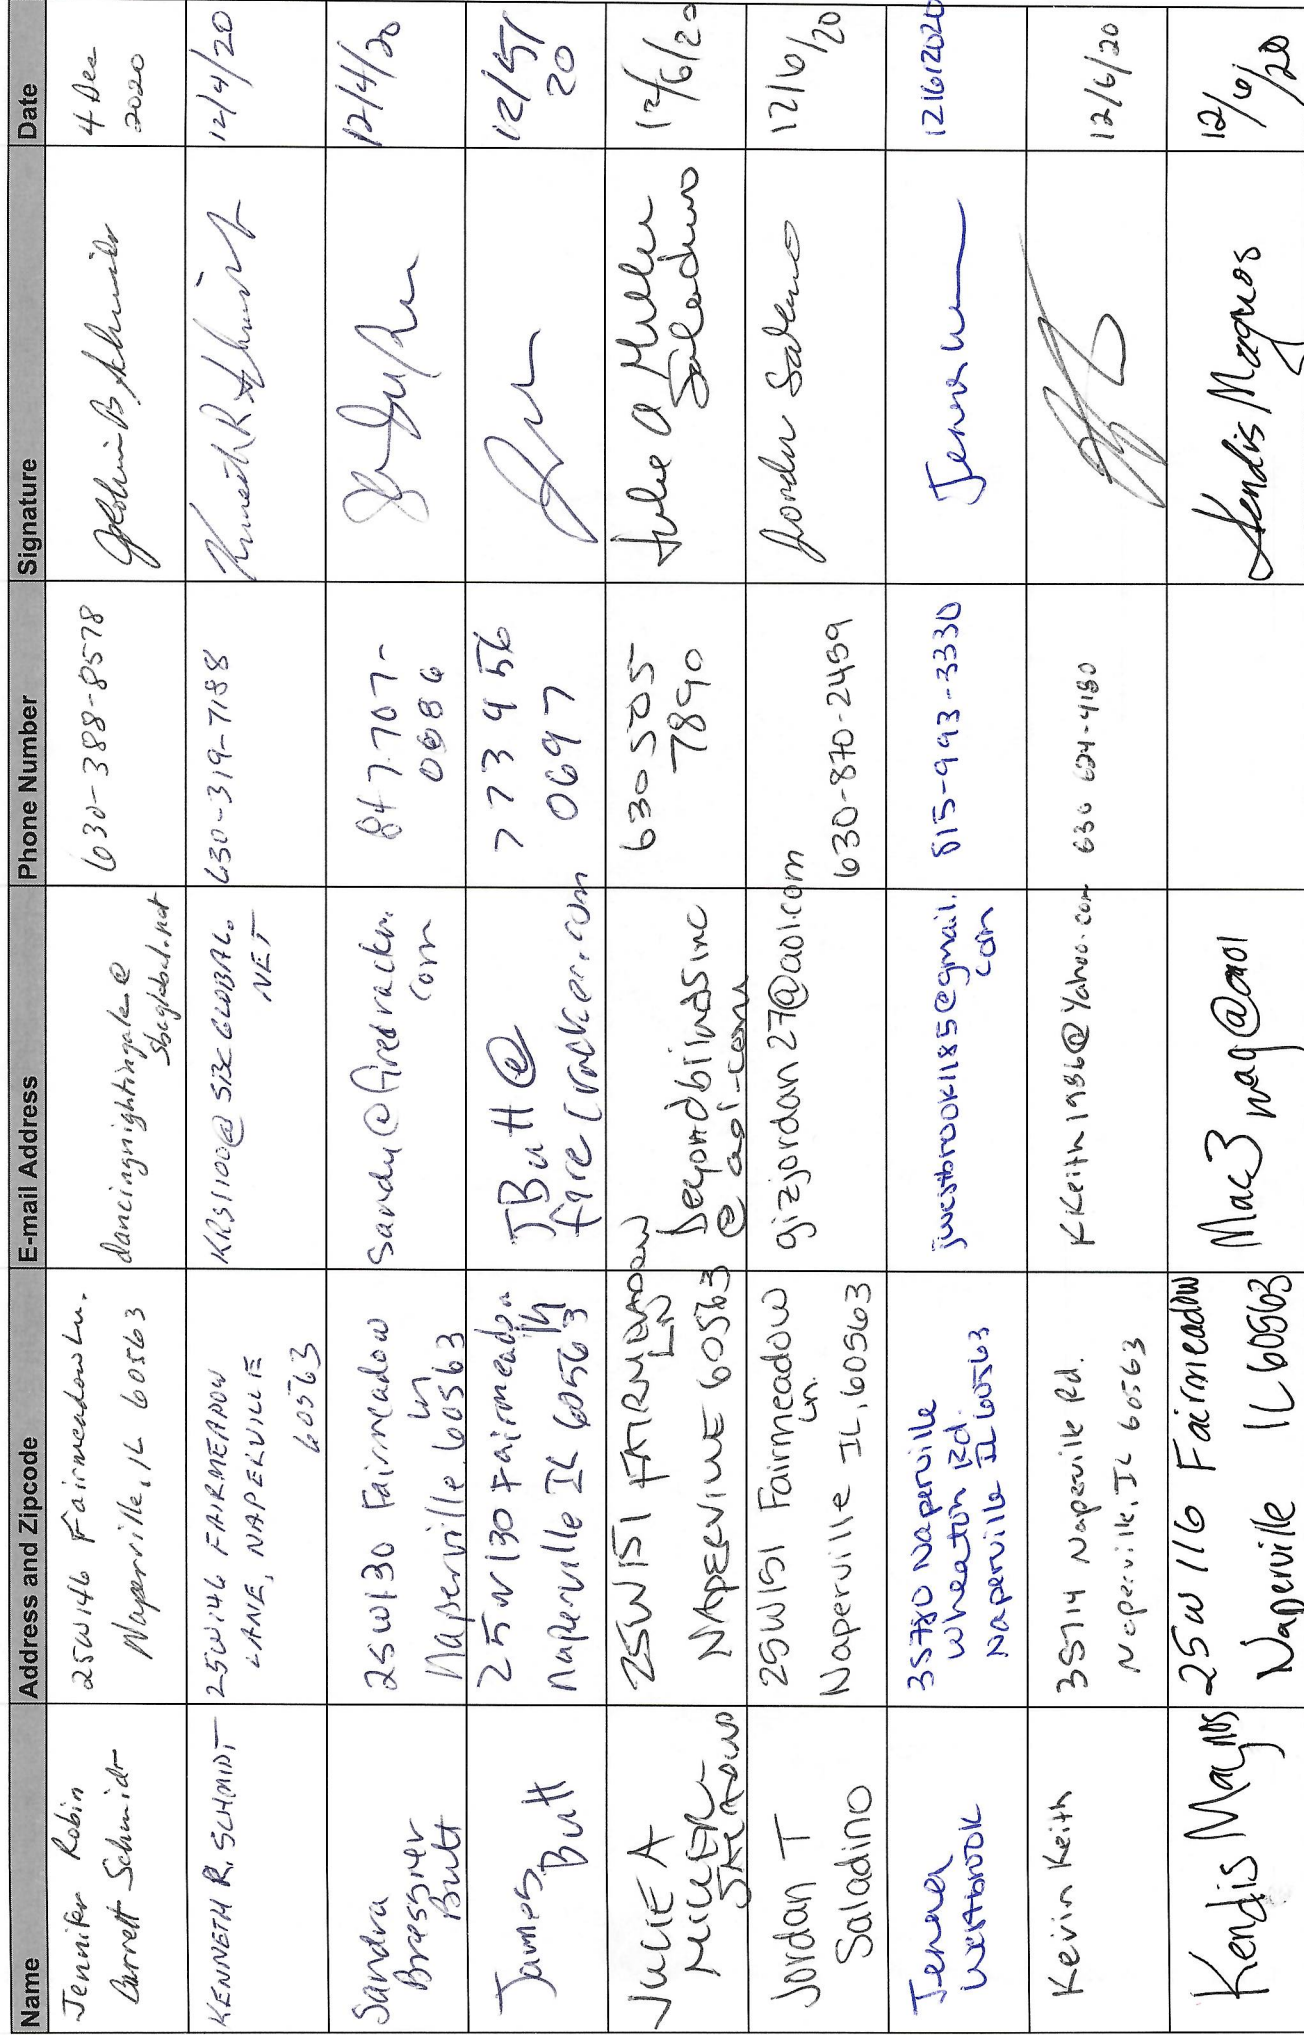 Name Address and Zipcode E-mail Address Phone Number Signature Date
Jennifer Robin
Barrett Schmidt
25W146 Fairmeadow Ln.
Naperville, IL 60563
dancingnightingale@
sbcglobal.net
630-388-8578
4 Dec
2020
KENNETH R. SCHMIDT
25W146 FAIRMEADOW
LANE, NAPERVILLE
60563
KRS1100@SBCGLOBAL.
NET
630-319-7188
Kenneth R Schmidt
12/4/20
Sandra
Bressier
Butt
25W130 Fairmeadow
Ln
Naperville 60563
Sandy@firecracker.
com
847-707-
0886
12/4/20
James
Butt
25W130 Fairmeadow
ln
Naperville IL 60563
JButt@
firecracker.com
773 956
0697
12/5/
20
JULIE A
MILLER-
SALADINO
25W151 FAIRMEADOW
LN
NAPERVILLE 60563
beyondblindsinc
@aol.com
630 505
7890
Julie A Miller
Saladino
12/6/20
Jordan T
Saladino
25W151 Fairmeadow
Ln.
Naperville IL, 60563
gizjordan27@aol.com
630-870-2459
Jordan Saladino
12/6/20
Jenna
Westbrook
3S780 Naperville
Wheaton Rd.
Naperville IL 60563
jwestbrook1185@gmail.
com
815-993-3330
Jenna
12/6/2020
Kevin Keith
3S714 Naperville Rd.
Naperville, IL 60563
KKeith1986@Yahoo.com
630 624-4180
12/6/20
Kendis Magnos
25W116 Fairmeadow
Naperville IL 60563
Mac3mag@aol
Kendis Magnos
12/6/20